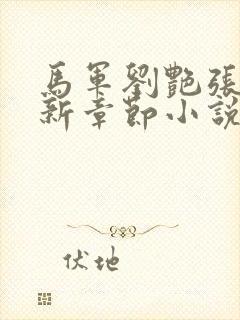 馬軍劉艷張
新章節小說
伏地